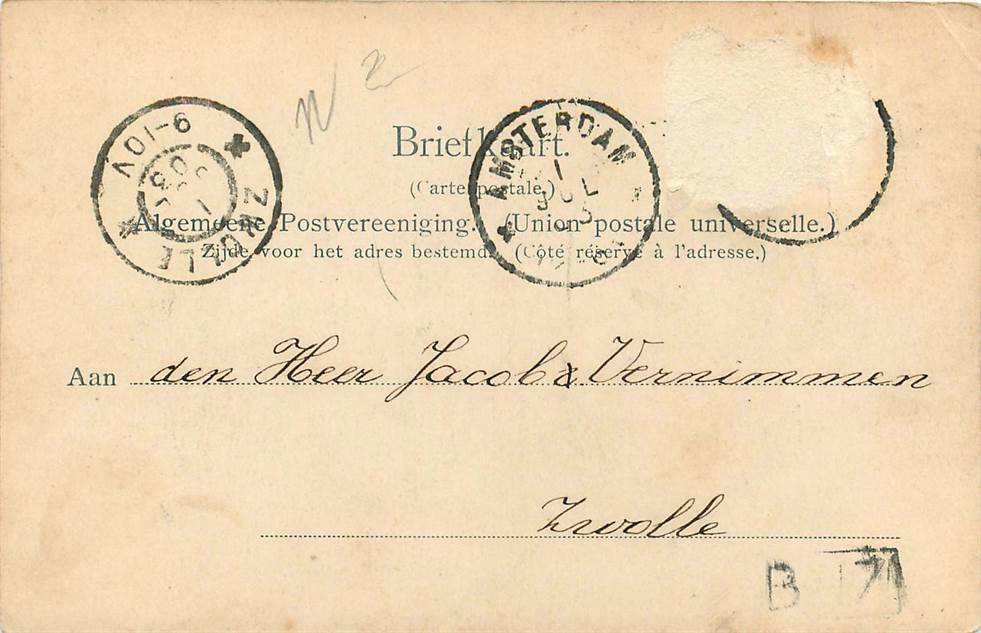 N 2
Briefkaart.
(Carte postale.)
Algemeene Postvereeniging. (Union postale universelle.)
Zijde voor het adres bestemd. (Côté réservé à l'adresse.)
ZWOLLE
9-10V
AMSTERDAM
1
JUL
Aan den Heer Jacob Vernimmen
Zwolle
B 7